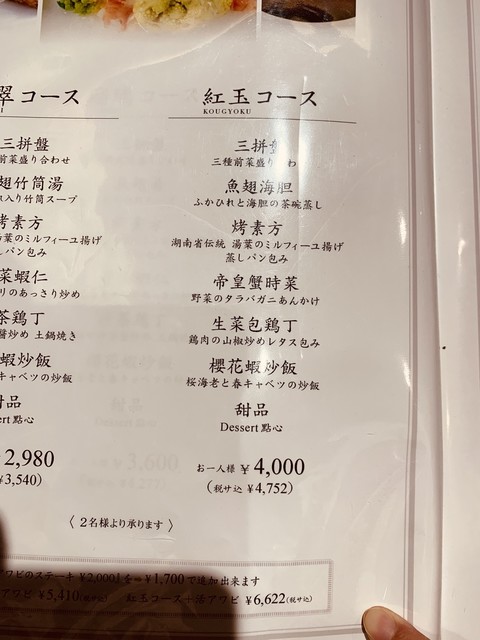 翠コース
三拼盤
前菜盛り合わせ
翅竹筒湯
入り竹筒スープ
烤素方
湯葉のミルフィーユ揚げ
しパン包み
菜蝦仁
リのあっさり炒め
茶鶏丁
醤炒め 土鍋焼き
蝦炒飯
キャベツの炒飯
甜品
ert 點心
2,980
¥3,540)
紅玉コース
KOUGYOKU
三拼
三種前菜盛り わ
魚翅海胆
ふかひれと海胆の茶碗蒸し
烤素方
湖南省伝統 湯葉のミルフィーユ揚げ
蒸しパン包み
帝皇蟹時菜
野菜のタラバガニあんかけ
生菜包鶏丁
鶏肉の山椒炒めレタス包み
櫻花蝦炒飯
桜海老と春キャベツの炒飯
甜品
Dessert 點心
お一人様 ¥ 4,000
(税サ込 ¥4,752)
〈 2名様より承ります 〉
アワビのステーキ ¥2,000を⇒¥1,700で追加出来ます
アワビ ¥5,410(税サ込) 紅玉コース+活アワビ ¥6,622(税サ込)